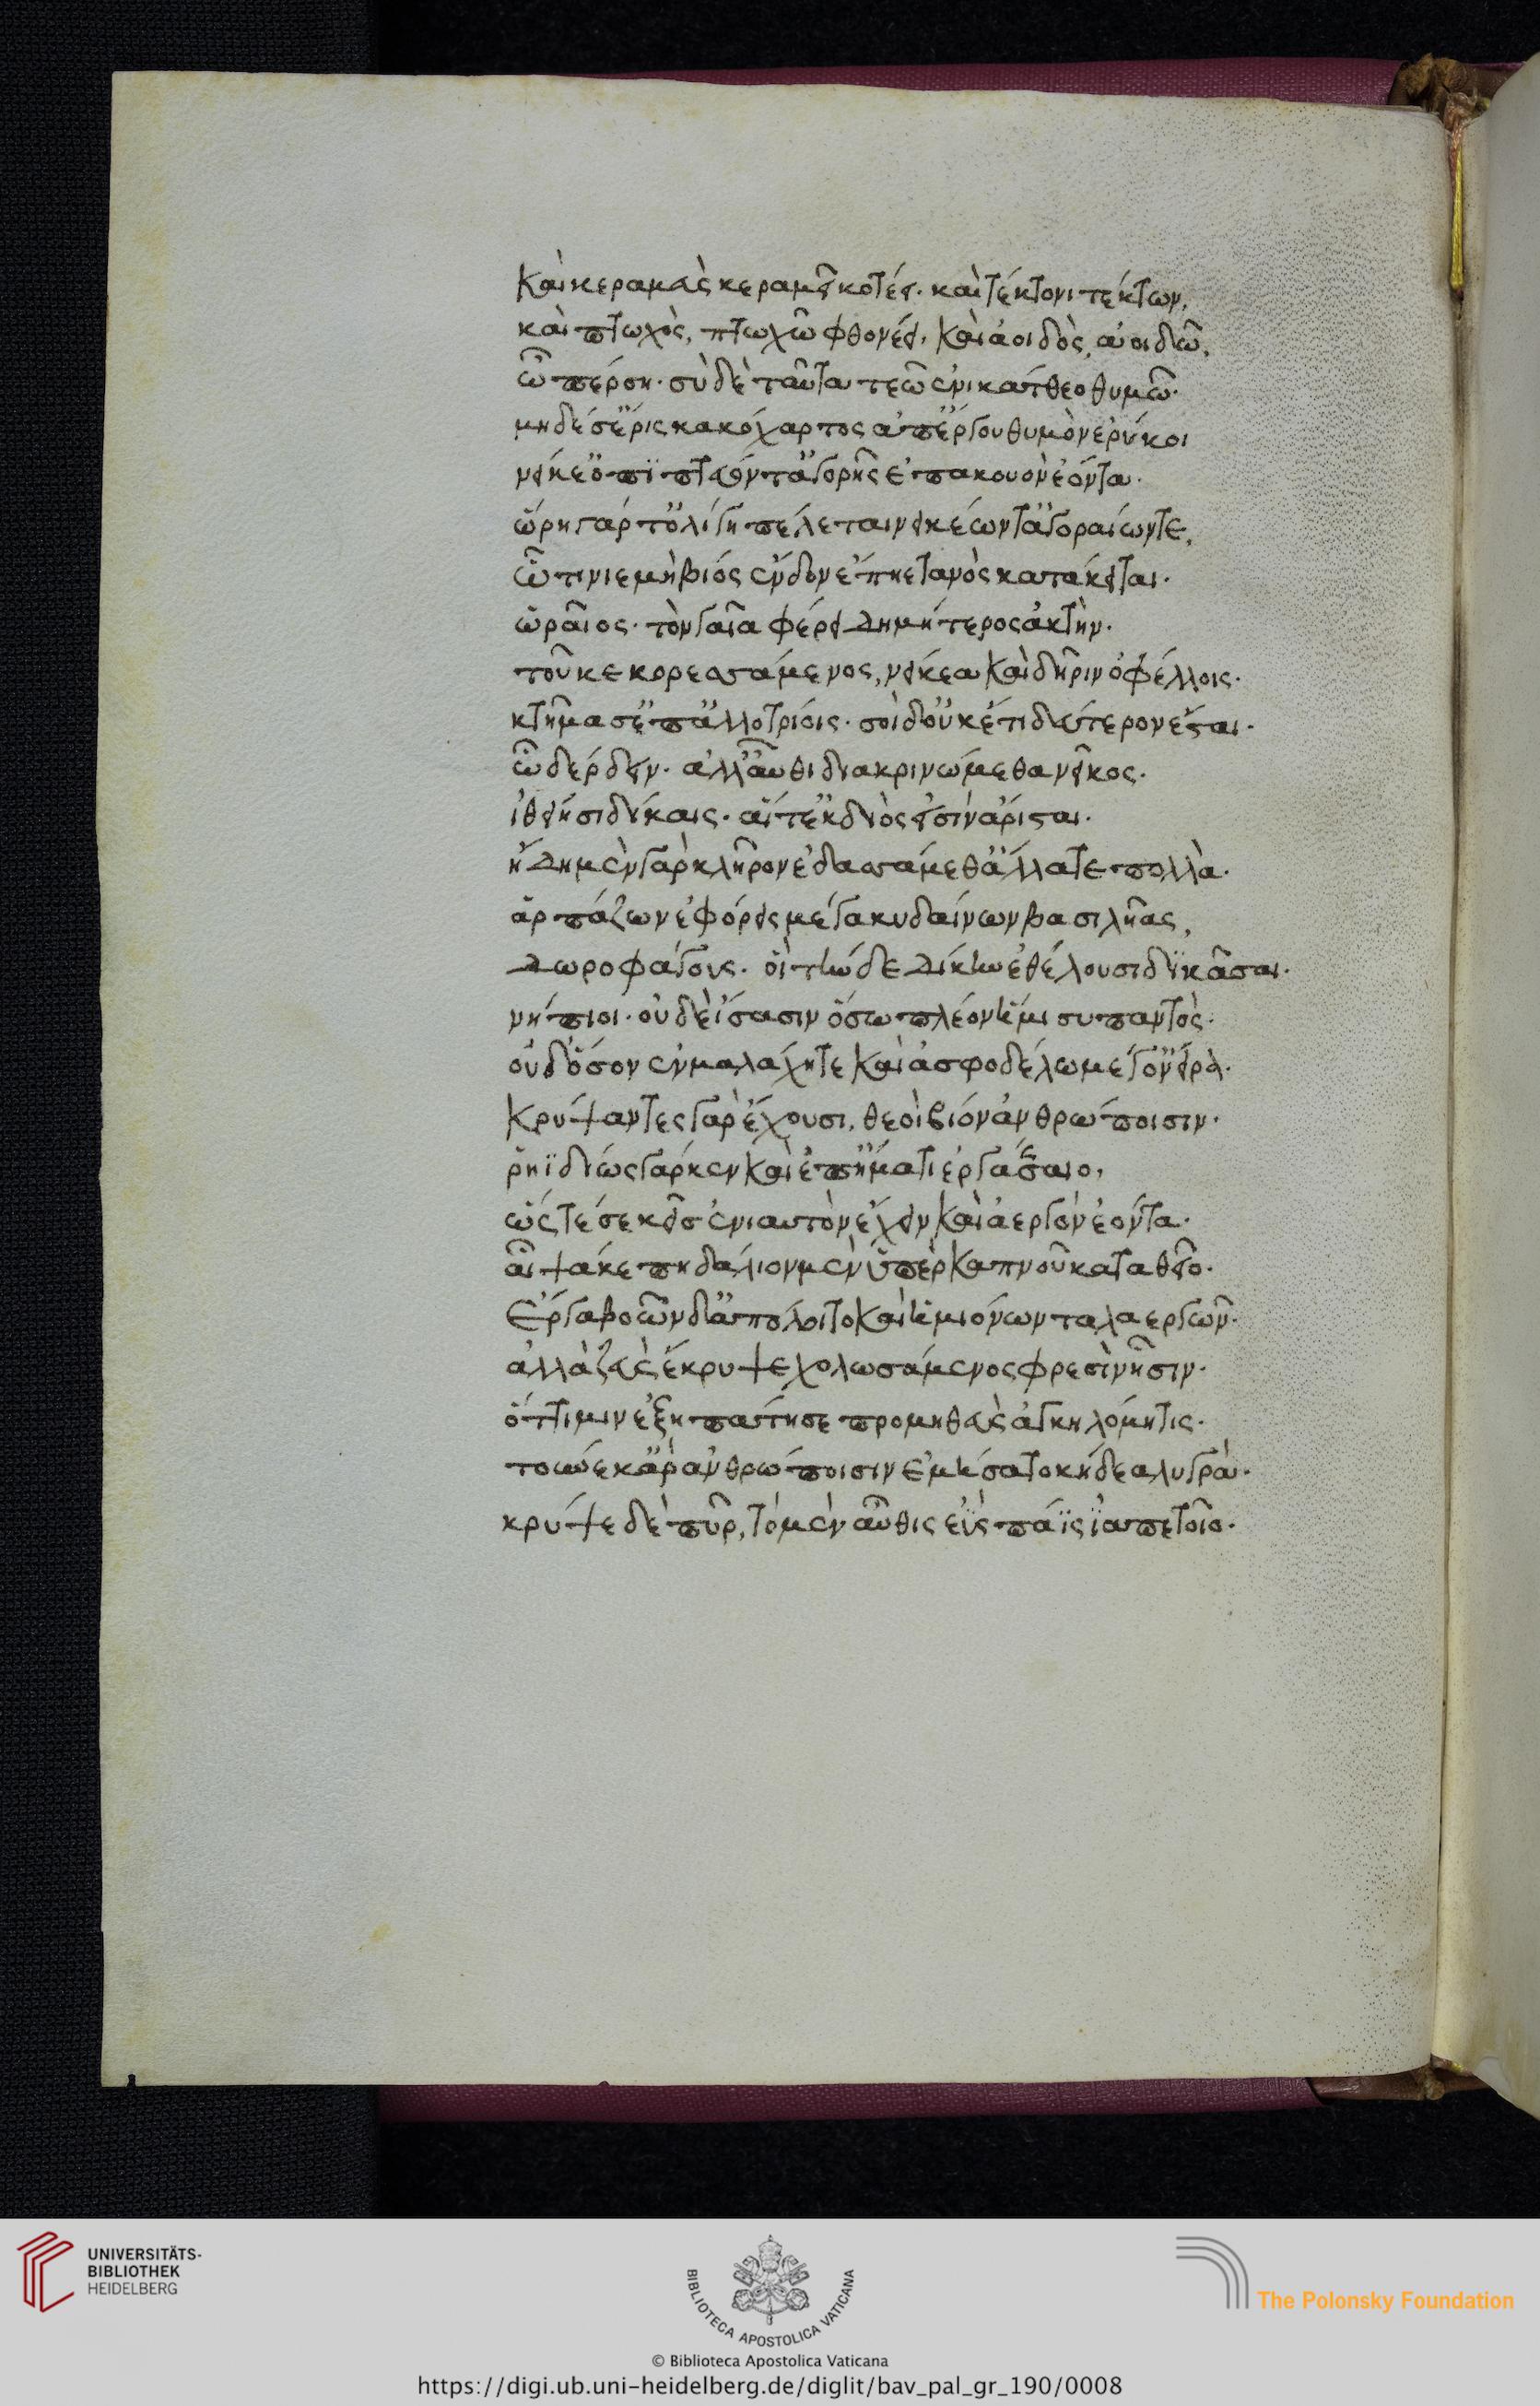 Καὶ κεραμεὺς κεραμεῖ κοτέει· καὶ τέκτονι τέκτων,
καὶ πτωχὸς, πτωχῶ φθονέει, Καὶ ἀοιδὸς, ἀοιδῶ,
ὦ πέρση· σὺ δὲ ταῦτα τεῶ ἐνικάτθεο θυμῶ·
μηδέ σ' ἔρις κακόχαρτος ἀπ' ἔργου θυμὸν ἐρύκοι
νείκε' ὀπιπτεύοντ' ἀγορῆς ἐπακουὸν ἐόντα·
ὥρη γάρ τ' ὀλίγη πέλεται νεικέων τ' ἀγοραίων τε,
ὧ τινι ε μὴ βιός ἔνδον ἐπηετανὸς κατάκειται·
ὡραῖος· τὸν γαῖα φέρει Δημήτερος ἀκτὴν·
τοῦ κε κορεσσάμενος, νείκεα Καὶ δῆριν ὀφέλλοις·
κτήμασ' ἐπ' ἀλλοτρίοις· σοὶ δ' οὐκέτι δεύτερον ἔσται·
ὧδ' ἔρδειν· ἀλλ' αὖθι διακρινώμεθα νεῖκος·
ἰθείησι δίκαις· αἵ τ' ἐκ διός εἰσιν ἄρισται·
ἤδη μὲν γὰρ κλῆρον ἐδασσάμεθ' ἄλλα τε πολλὰ·
ἁρπάζων ἐφόρεις μέγα κυδαίνων βασιλῆας,
Δωροφάγους· οἳ τήνδε Δίκην ἐθέλουσι δικᾶσαι·
νήπιοι· οὐδὲ ἴσασιν ὅσω πλέον ἥμισυ παντὸς·
οὐδ' ὅσον ἐν μαλάχη τε Καὶ ἀσφοδέλω μέγ' ὄνειαρ·
Κρύψαντες γὰρ ἔχουσι, θεοὶ βίον ἀνθρώποισιν·
ῥηϊδίως γάρ κεν Καὶ ἐπ' ἤματι ἐργάσσαιο,
ὥς τέ σε κεἰς ἐνιαυτὸν ἔχειν Καὶ ἀεργὸν ἐόντα·
αἶψά κε πηδάλιον μὲν ὑπὲρ Καπνοῦ καταθεῖο·
Ἔργα βοῶν δ' ἀπόλοιτο Καὶ ἡμιόνων ταλαεργῶν·
ἀλλὰ ζεὺς ἔκρυψε χολωσάμενος φρεσὶν ἧσιν·
ὅττι μιν ἐξηπάτησε προμηθεὺς ἀγκηλόμητις·
τοὔνεκ' ἄρ' ἀνθρώποισιν ἐμήσατο κήδεα λυγρὰ·
κρύψε δὲ πῦρ, τὸ μὲν αὖθις ἐῢς πάϊς ἰαπετοῖο·
UNIVERSITÄTS-
BIBLIOTHEK
HEIDELBERG
BIBLIOTECA APOSTOLICA VATICANA
The Polonsky Foundation
© Biblioteca Apostolica Vaticana
https://digi.ub.uni-heidelberg.de/diglit/bav_pal_gr_190/0008